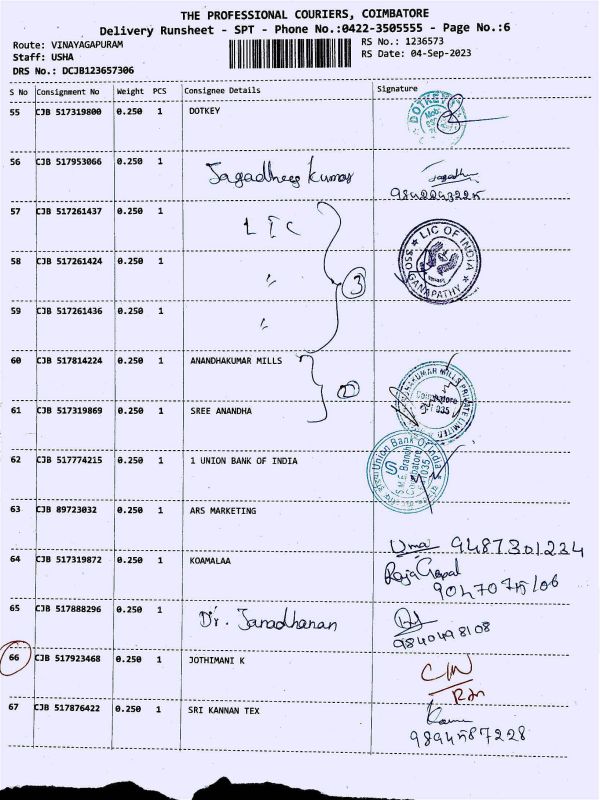 THE PROFESSIONAL COURIERS, COIMBATORE
Delivery Runsheet - SPT - Phone No.:0422-3505555 - Page No.:6
Route: VINAYAGAPURAM
RS No.: 1236573
Staff: USHA
RS Date: 04-Sep-2023
DRS No.: DCJB123657306
S No Consignment No Weight PCS Consignee Details Signature
55 CJB 517319800 0.250 1 DOTKEY
DOTKEY
56 CJB 517953066 0.250 1 Jagadheeskumar
57 CJB 517261437 0.250 1 LIC
LIC OF INDIA
SSO GANAPATHY
58 CJB 517261424 0.250 1 〃
3
59 CJB 517261436 0.250 1 〃
60 CJB 517814224 0.250 1 ANANDHAKUMAR MILLS
61 CJB 517319869 0.250 1 SREE ANANDHA
Coimbatore
62 CJB 517774215 0.250 1 1 UNION BANK OF INDIA
Union Bank Of India
S.M.E Branch
Coimbatore
63 CJB 89723032 0.250 1 ARS MARKETING
Uma 9487301234
64 CJB 517319872 0.250 1 KOAMALAA
RajaGopal
65 CJB 517888296 0.250 1 Dr. Janadhanan
9840498108
66 CJB 517923468 0.250 1 JOTHIMANI K
67 CJB 517876422 0.250 1 SRI KANNAN TEX
9894587228